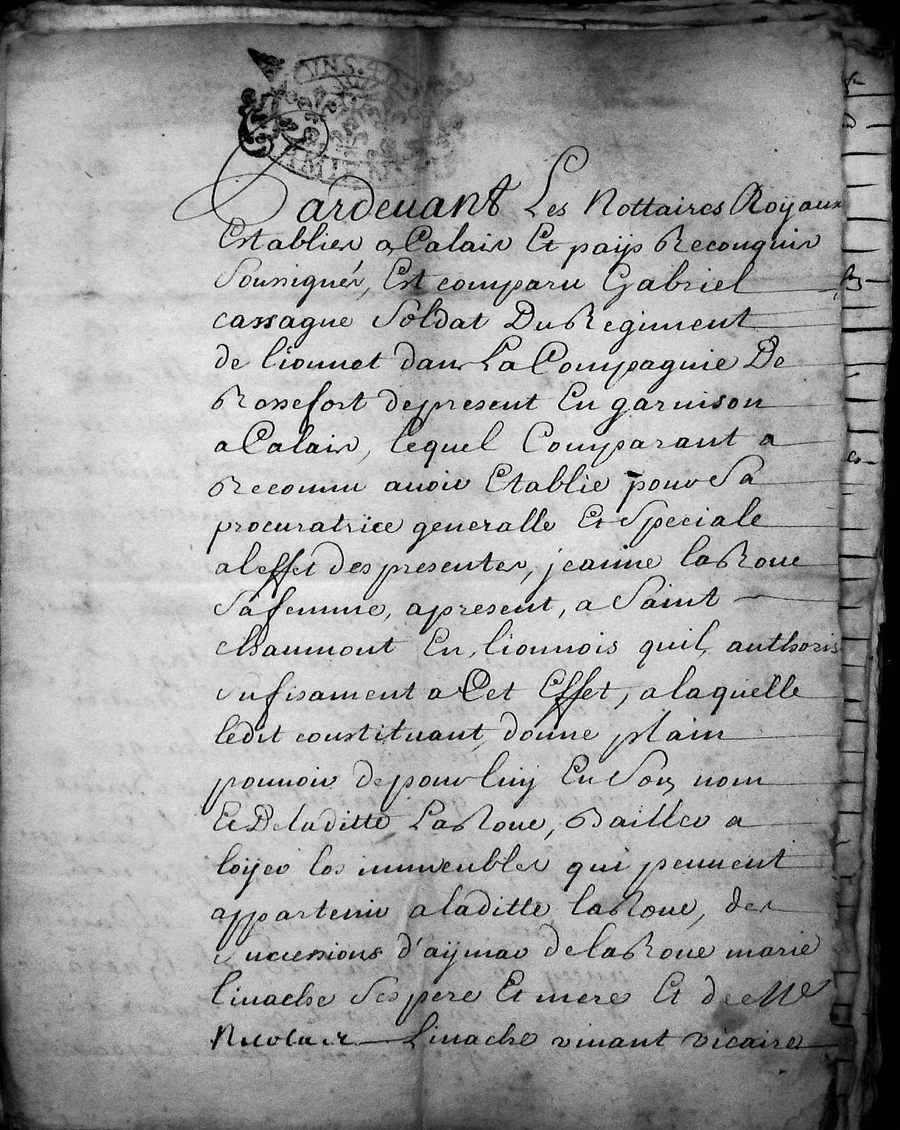 UNS.
Pardevant Les Nottaires Royaux
Establies a Calais Et païs Reconquis
Soussignés, Est comparu Gabriel
cassagne Soldat Du Regiment
de lionnet dans La Compagnie De
Rossefort de present En garnison
a Calais, lequel Comparant a
Reconnu avoir Etablie pour Sa
procuratrice generalle Et Speciale
a leffet des presentes, jeanne laRoue
Sa femme, apresent, a Saint
chaumont En lionnois quil authoris
Sufisament a Cet Effet, a laquelle
ledit constituant, donne plain
pouvoir de pour luy En Son nom
Et De laditte LaRoue, Bailler a
loyer les immeubles qui peuvent
appartenir a laditte laRoue, des
Sucessions d'aymar de laRoue marie
linache Ses pere Et mere Et de Me
Nicolas Linache vivant vicaire